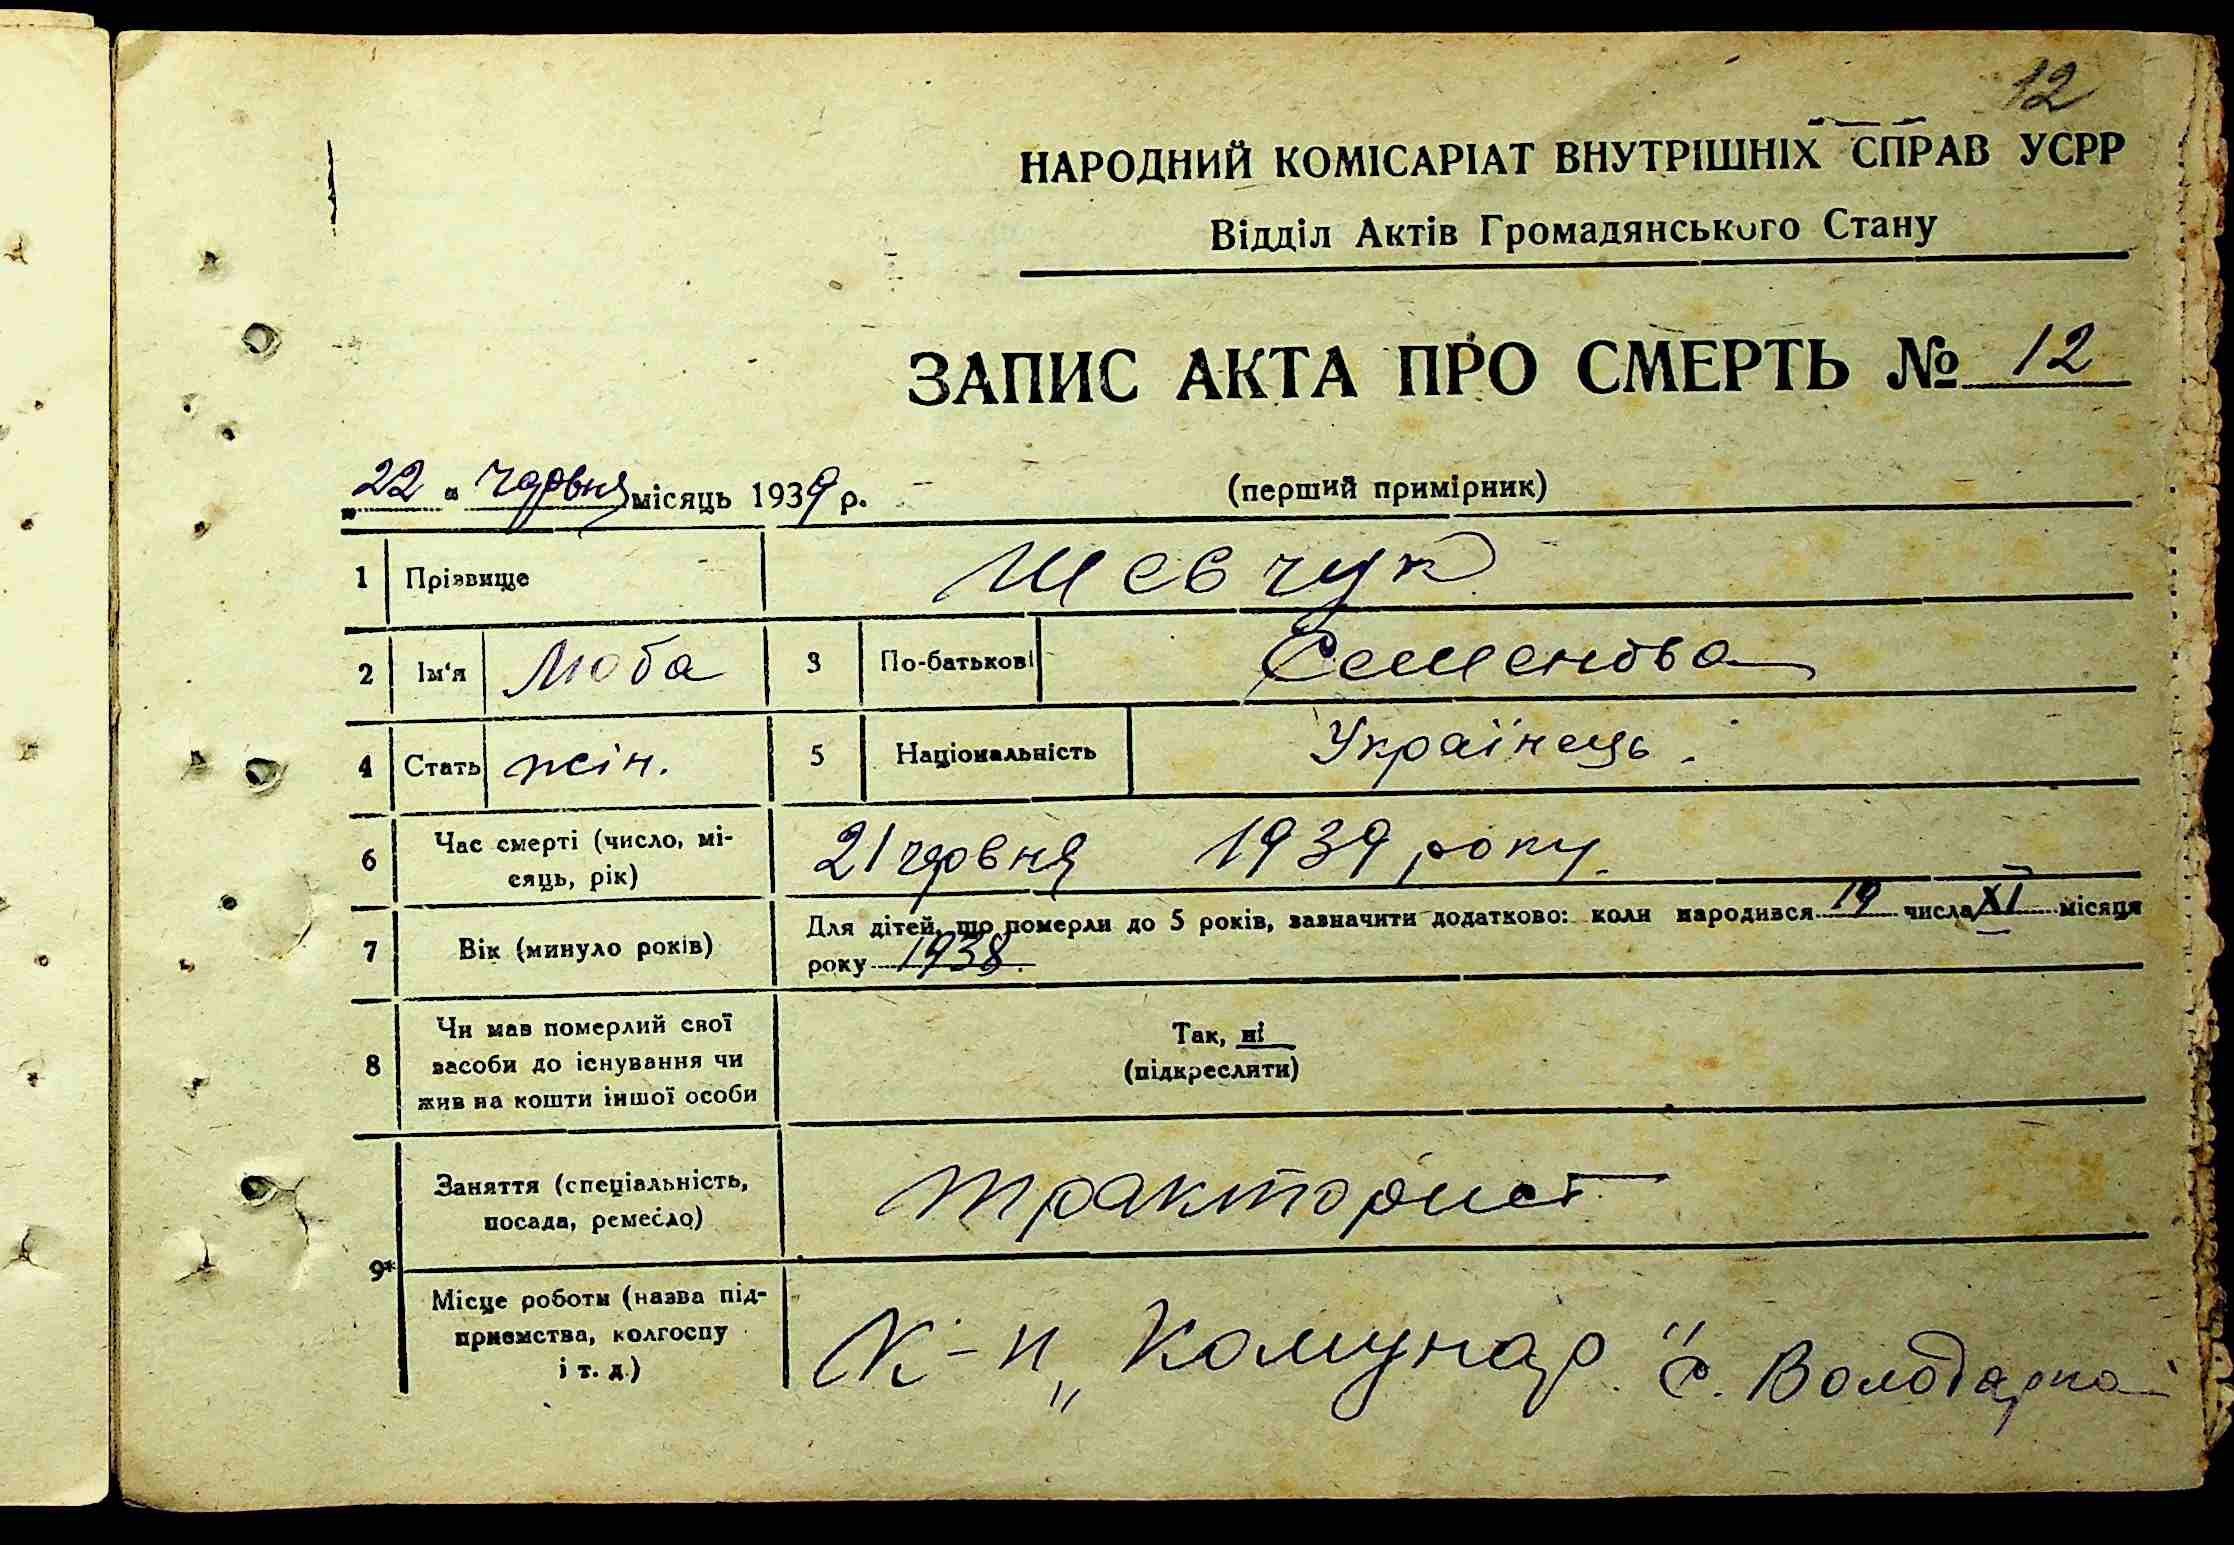 12
НАРОДНИЙ КОМІСАРІАТ ВНУТРІШНІХ СПРАВ УСРР
Відділ Актів Громадянського Стану
ЗАПИС АКТА ПРО СМЕРТЬ № 12
„22“ червня місяць 1939 р.
(перший примірник)
1 Прізвище Шевчук
2 Ім'я Люба 3 По-батькові Семенова
4 Стать жін. 5 Національність Українець.
6 Час смерті (число, мі-
сяць, рік) 21 червня 1939 року.
7 Вік (минуло років) Для дітей, що померли до 5 років, зазначити додатково: коли народився 19 числа XI місяця
року 1938.
8 Чи мав померлий свої
засоби до існування чи
жив на кошти іншої особи
Так, ні
(підкреслити)
9* Заняття (спеціальність,
посада, ремесло) тракторист
Місце роботи (назва під-
приємства, колгоспу
і т. д.) К-п „Комунар" с. Володарка